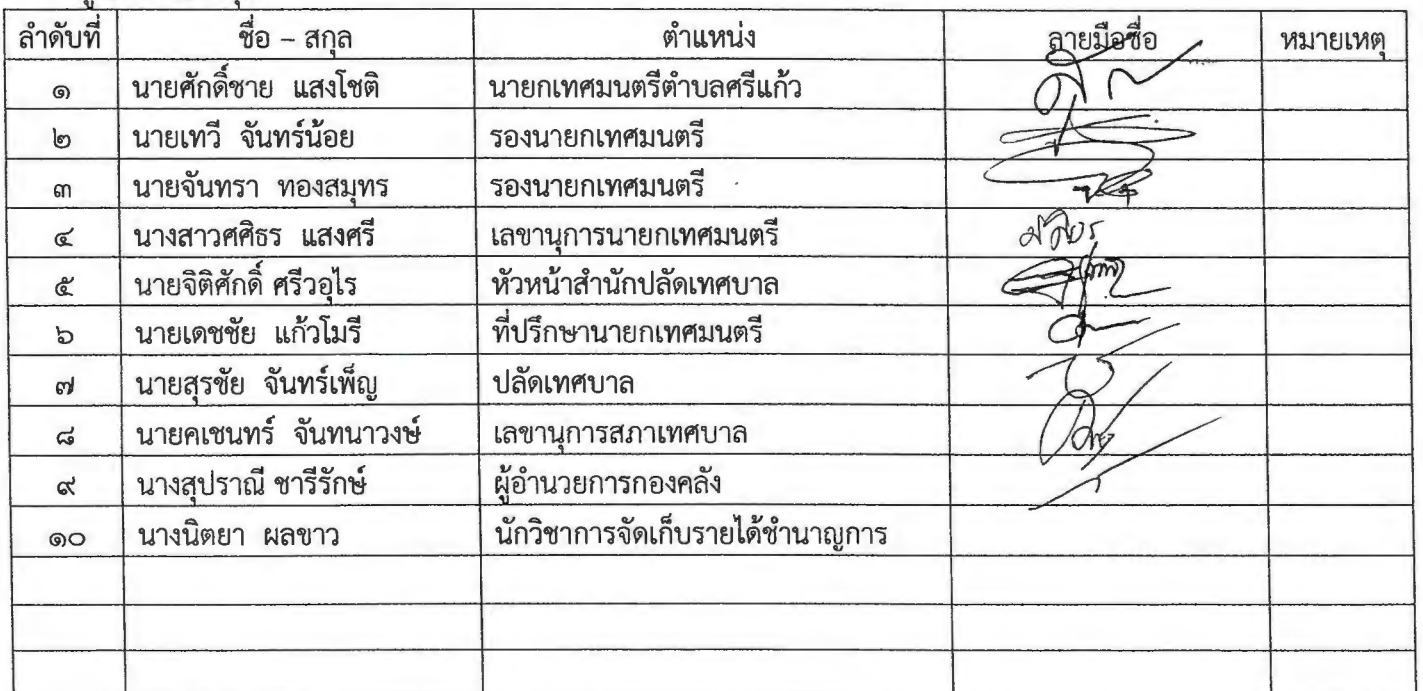 ลำดับที่ ชื่อ – สกุล ตำแหน่ง ลายมือชื่อ หมายเหตุ
๑ นายศักดิ์ชาย แสงโชติ นายกเทศมนตรีตำบลศรีแก้ว
๒ นายเทวี จันทร์น้อย รองนายกเทศมนตรี
๓ นายจันทรา ทองสมุทร รองนายกเทศมนตรี
๔ นางสาวศศิธร แสงศรี เลขานุการนายกเทศมนตรี
๕ นายจิติศักดิ์ ศรีวอุไร หัวหน้าสำนักปลัดเทศบาล
๖ นายเดชชัย แก้วโมรี ที่ปรึกษานายกเทศมนตรี
๗ นายสุรชัย จันทร์เพ็ญ ปลัดเทศบาล
๘ นายคเชนทร์ จันทนาวงษ์ เลขานุการสภาเทศบาล
๙ นางสุปราณี ชารีรักษ์ ผู้อำนวยการกองคลัง
๑๐ นางนิตยา ผลขาว นักวิชาการจัดเก็บรายได้ชำนาญการ